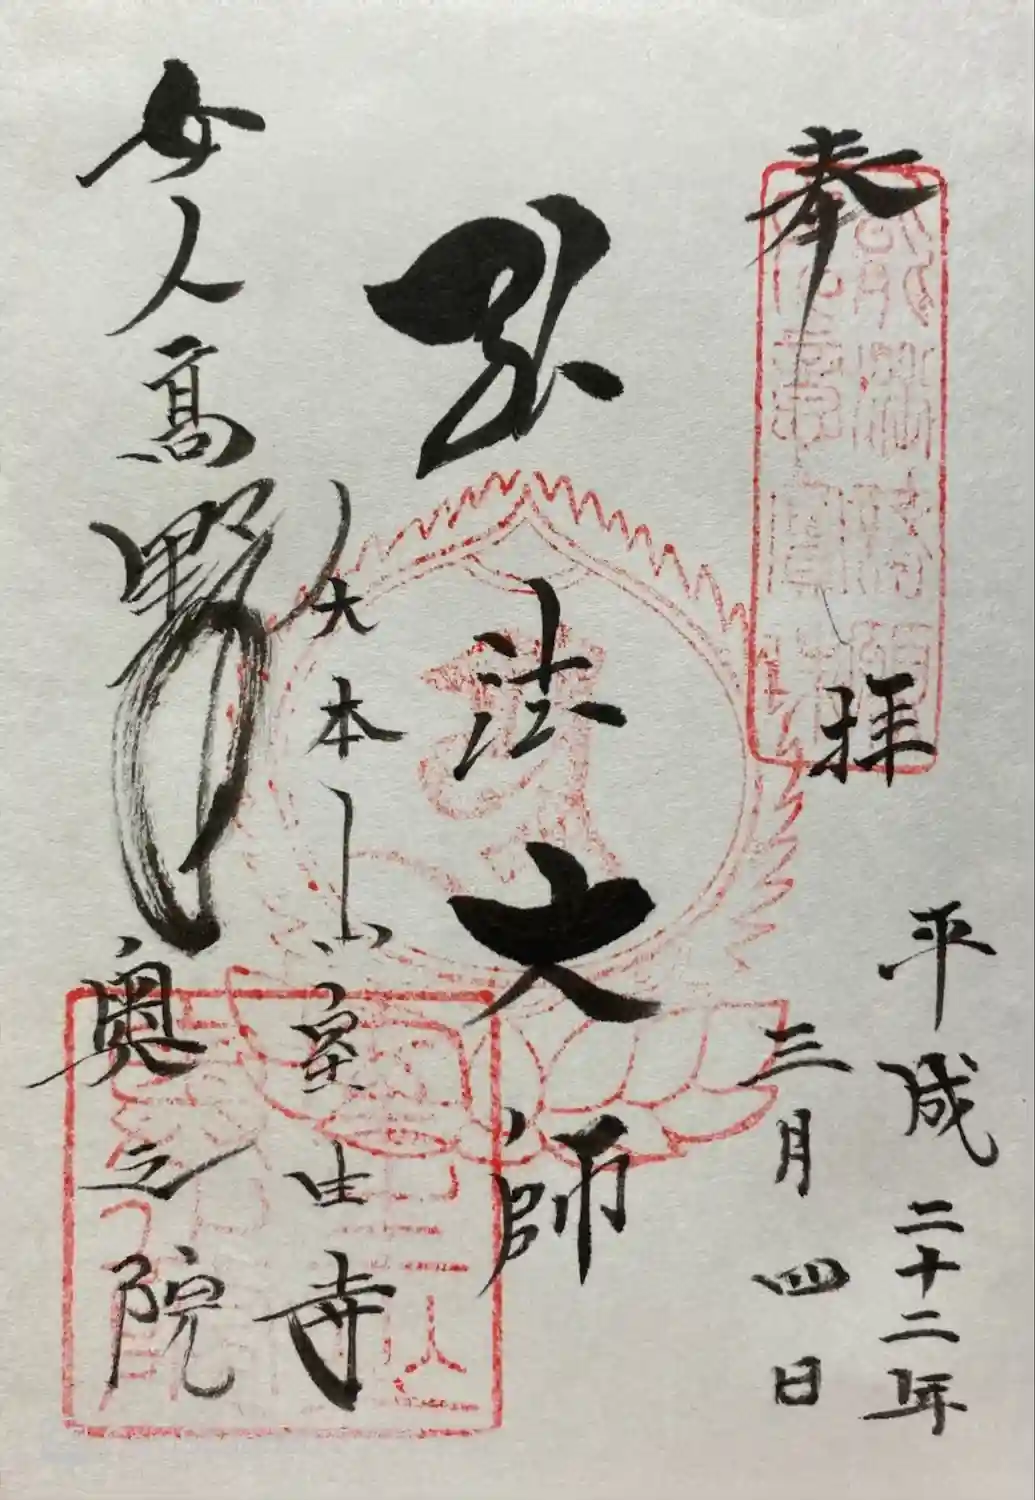 奉拝
平成二十二年
三月四日
弘法大師
大本山室生寺
女人高野奥之院